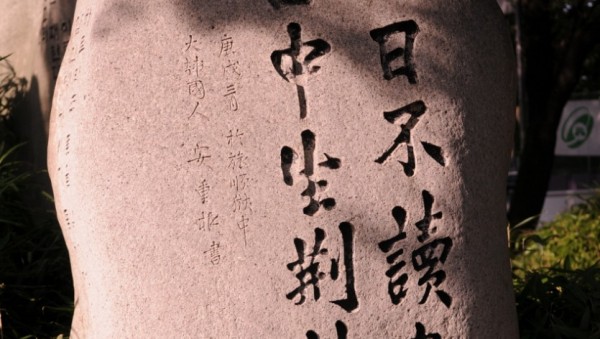 日不讀
中生荊
庚戌三月 於旅順獄中
大韓國人 安重根 書